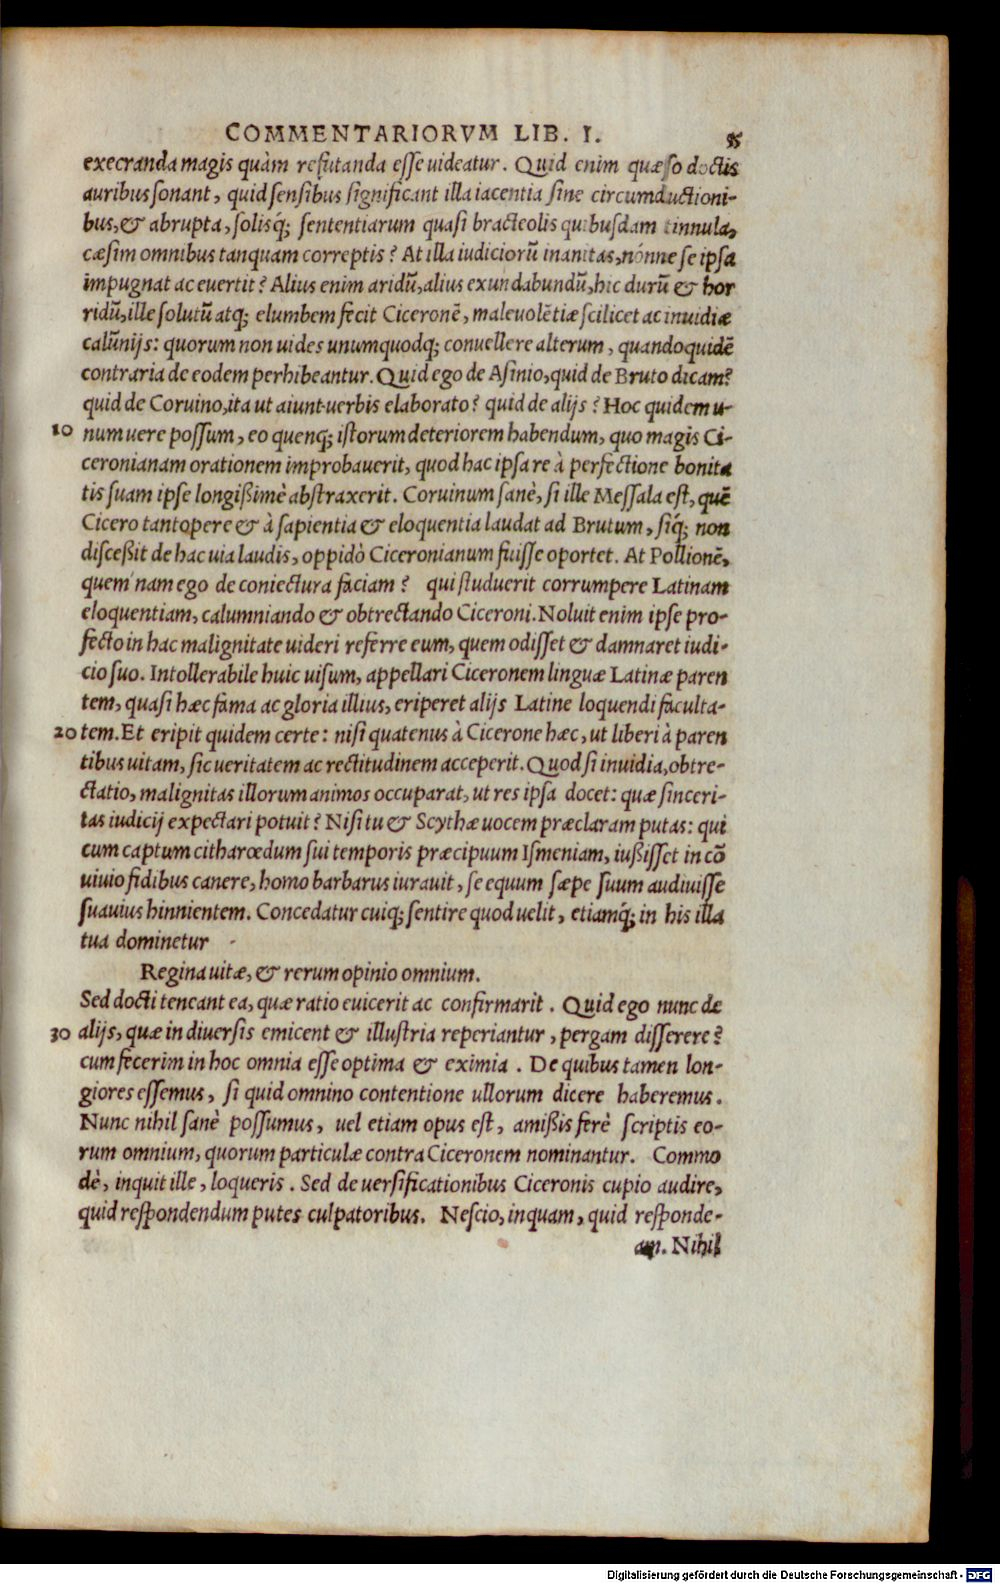 COMMENTARIORVM LIB. I. 85
execranda magis quàm refutanda esse uideatur. Quid enim quæso doctis
auribus sonant, quid sensibus significant illa iacentia sine circumductioni-
bus, & abrupta, solisq́; sententiarum quasi bracteolis quibusdam tinnula,
cæsim omnibus tanquam correptis? At illa iudiciorũ inanitas, nónne se ipsa
impugnat ac euertit? Alius enim aridũ, alius exundabundũ, hic durũ & hor
ridũ, ille solutũ atq; elumbem fecit Ciceronẽ, maleuolẽtiæ scilicet ac inuidiæ
calũnijs: quorum non uides unumquodq; conuellere alterum, quandoquidẽ
contraria de eodem perhibeantur. Quid ego de Asinio, quid de Bruto dicam?
quid de Coruino, ita ut aiunt uerbis elaborato? quid de alijs? Hoc quidem u-
10 num uere possum, eo quenq; istorum deteriorem habendum, quo magis Ci-
ceronianam orationem improbauerit, quod hac ipsa re à perfectione bonita
tis suam ipse longißimè abstraxerit. Coruinum sanè, si ille Messala est, quẽ
Cicero tantopere & à sapientia & eloquentia laudat ad Brutum, siq́; non
disceßit de hac uia laudis, oppidò Ciceronianum fuisse oportet. At Pollionẽ,
quem nam ego de coniectura faciam? qui studuerit corrumpere Latinam
eloquentiam, calumniando & obtrectando Ciceroni. Noluit enim ipse pro-
fecto in hac malignitate uideri referre eum, quem odisset & damnaret iudi-
cio suo. Intollerabile huic uisum, appellari Ciceronem linguæ Latinæ paren
tem, quasi hæc fama ac gloria illius, eriperet alijs Latine loquendi faculta-
20 tem. Et eripit quidem certe: nisi quatenus à Cicerone hæc, ut liberi à paren
tibus uitam, sic ueritatem ac rectitudinem acceperit. Quod si inuidia, obtre-
ctatio, malignitas illorum animos occuparat, ut res ipsa docet: quæ sinceri-
tas iudicij expectari potuit? Nisi tu & Scythæ uocem præclaram putas: qui
cum captum citharœdum sui temporis præcipuum Ismeniam, iußisset in cõ
uiuio fidibus canere, homo barbarus iurauit, se equum sæpe suum audiuisse
suauius hinnientem. Concedatur cuiq; sentire quod uelit, etiamq́; in his illa
tua dominetur
Regina uitæ, & rerum opinio omnium.
Sed docti teneant ea, quæ ratio euicerit ac confirmarit. Quid ego nunc de
30 alijs, quæ in diuersis emicent & illustria reperiantur, pergam disserere?
cum fecerim in hoc omnia esse optima & eximia. De quibus tamen lon-
giores essemus, si quid omnino contentione ullorum dicere haberemus.
Nunc nihil sanè possumus, uel etiam opus est, amißis ferè scriptis eo-
rum omnium, quorum particulæ contra Ciceronem nominantur. Commo
dè, inquit ille, loqueris. Sed de uersificationibus Ciceronis cupio audire,
quid respondendum putes culpatoribus. Nescio, inquam, quid responde-
am. Nihil
Digitalisierung gefördert durch die Deutsche Forschungsgemeinschaft - DFG